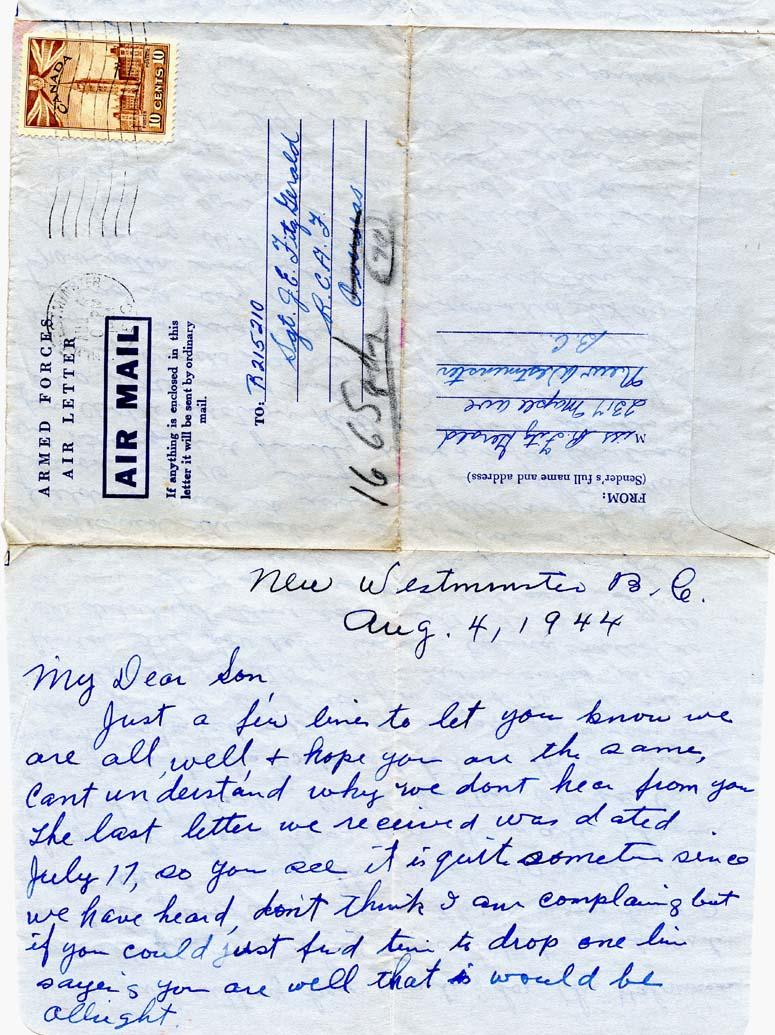 CANADA
10 CENTS 10
ARMED FORCES
AIR LETTER
AIR MAIL
If anything is enclosed in this
letter it will be sent by ordinary
mail.
TO: R215210
Sgt. J.E. Fitz Gerald
R.C.A.F.
Overseas
16 65
FROM:
(Sender's full name and address)
Miss B. Fitz Gerald
2317 Maple ave
New Westminster
B.C.
New Westminster B.C.
Aug. 4, 1944
My Dear Son,
Just a few lines to let you know we
are all, well, + hope you are the same,
Cant understand why we dont hear from you
The last letter we received was dated
July 17, so you see it is quite sometime since
we have heard, don't think I am complaing but
if you could just find time to drop one line
saying you are well that is would be
allright.